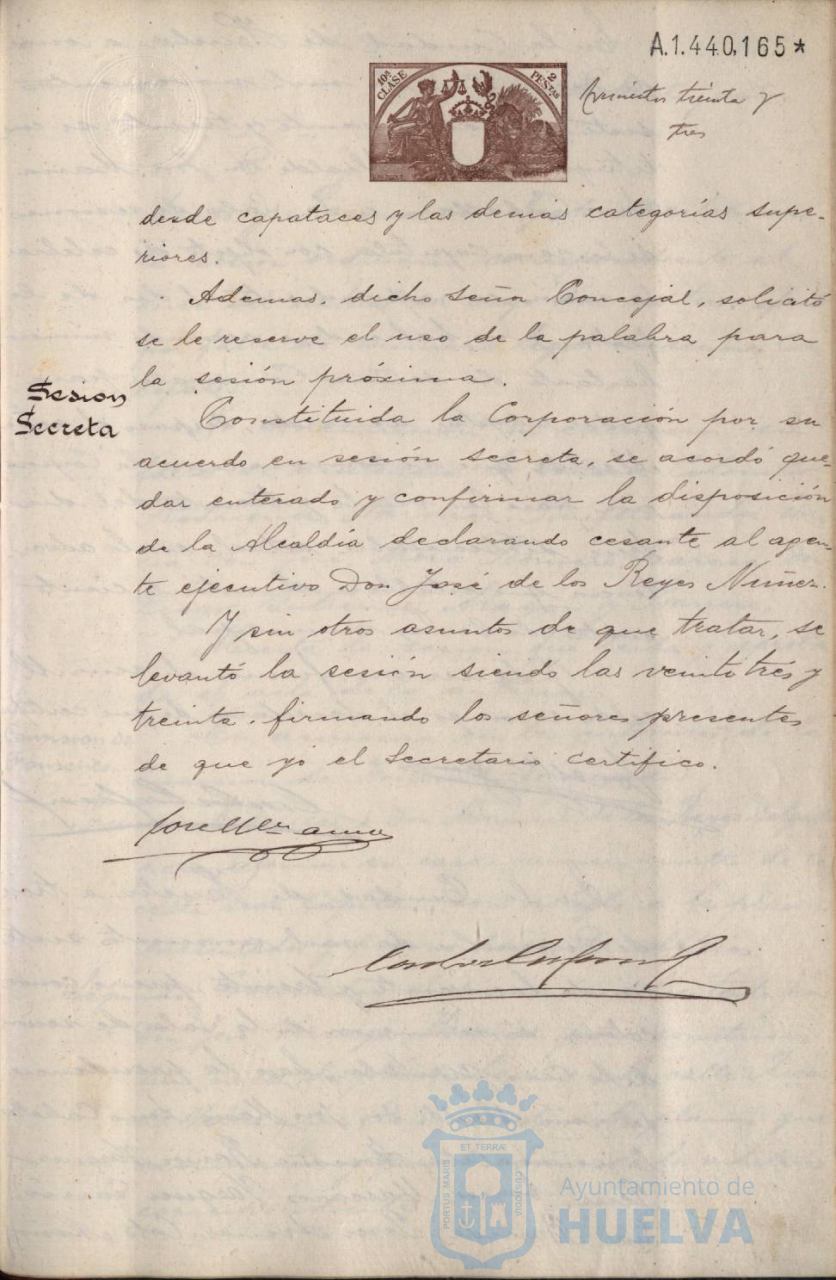 A.1.440.165*
10ª CLASE
2 PESETAS
treinta y
tres
desde capataces y las demás categorías supe-
riores.
Ademas, dicho Señor Concejal, solicitó
se le reserve el uso de la palabra para
la sesión próxima.
Sesion
Secreta
Constituida la Corporación por su
acuerdo en sesión secreta, se acordó que-
dar enterado y confirmar la disposición
de la Alcaldía declarando cesante al agen-
te ejecutivo Don José de los Reyes Nuñez.
Y sin otros asuntos de que tratar, se
levantó la sesión siendo las veintitrés y
treinta, firmando los señores presentes
de que yo el Secretario certifico.
PORTUS MARIS
ET TERRÆ
CUSTODIA
Ayuntamiento de
HUELVA